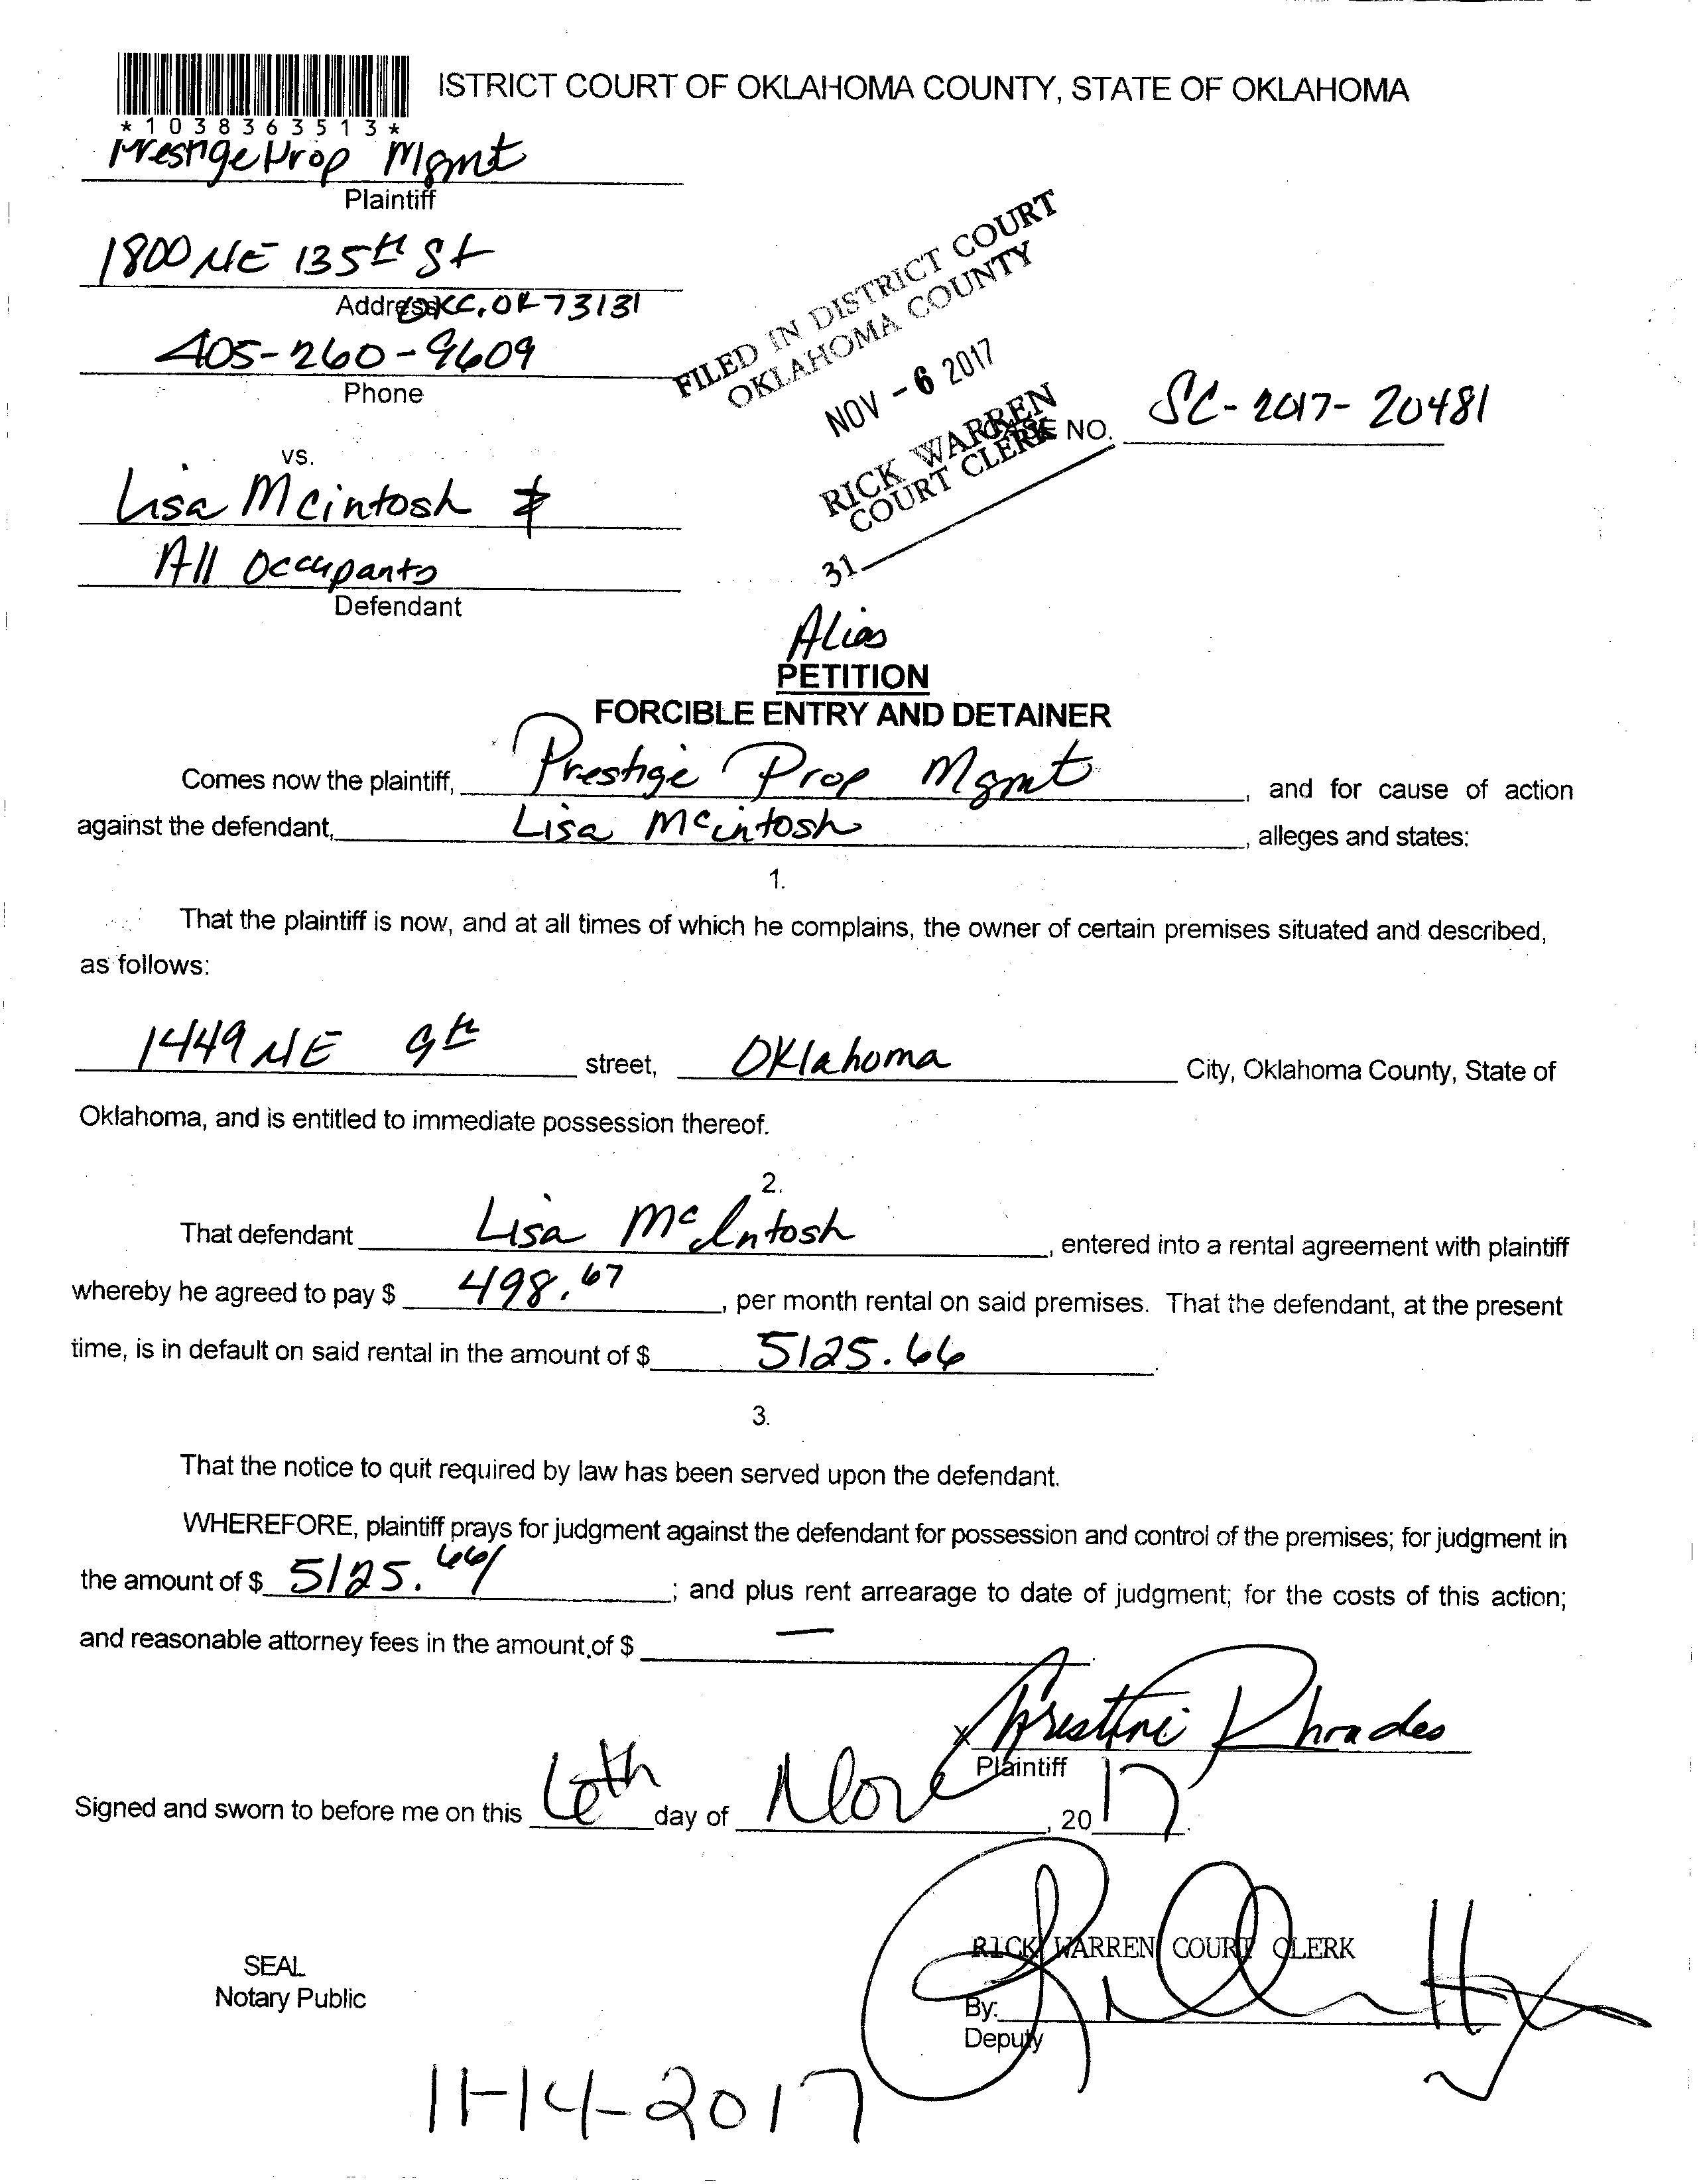 ISTRICT COURT OF OKLAHOMA COUNTY, STATE OF OKLAHOMA
*1038363513*
Prestige Prop Mgmt
Plaintiff
1800 NE 135th St
Address OKC, OK 73131
405-260-9609
Phone
FILED IN DISTRICT COURT
OKLAHOMA COUNTY
NOV - 6 2017
RICK WARREN
COURT CLERK
31
CASE NO. SC-2017-20481
vs.
Lisa Mcintosh &
All Occupants
Defendant
Alias
PETITION
FORCIBLE ENTRY AND DETAINER
Comes now the plaintiff, Prestige Prop Mgmt, and for cause of action
against the defendant, Lisa McIntosh, alleges and states:
1.
That the plaintiff is now, and at all times of which he complains, the owner of certain premises situated and described,
as follows:
1449 NE 9th street, Oklahoma City, Oklahoma County, State of
Oklahoma, and is entitled to immediate possession thereof.
2.
That defendant Lisa McIntosh, entered into a rental agreement with plaintiff
whereby he agreed to pay $ 498.67, per month rental on said premises. That the defendant, at the present
time, is in default on said rental in the amount of $ 5125.66.
3.
That the notice to quit required by law has been served upon the defendant.
WHEREFORE, plaintiff prays for judgment against the defendant for possession and control of the premises; for judgment in
the amount of $ 5125.66/; and plus rent arrearage to date of judgment; for the costs of this action;
and reasonable attorney fees in the amount of $ —.
X Christine Rhoades
Plaintiff
Signed and sworn to before me on this 6th day of Nov, 2017.
RICK WARREN COURT CLERK
SEAL
Notary Public
By:
Deputy
11-14-2017